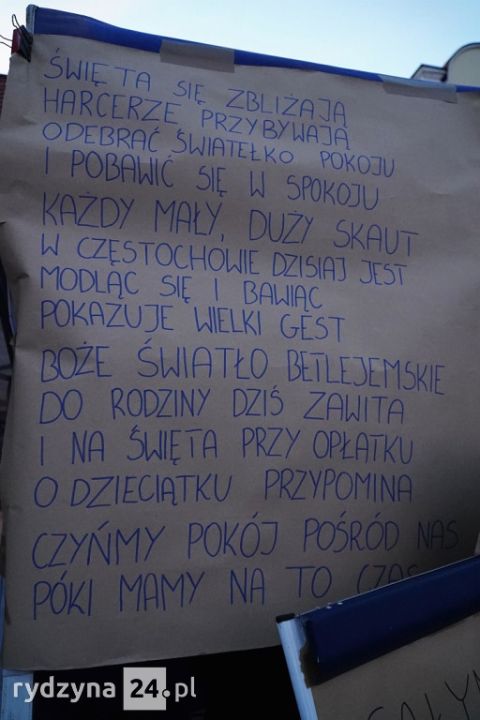 ŚWIĘTA SIĘ ZBLIŻAJĄ
HARCERZE PRZYBYWAJĄ
ODEBRAĆ ŚWIATEŁKO POKOJU
I POBAWIĆ SIĘ W SPOKOJU
KAŻDY MAŁY, DUŻY SKAUT
W CZĘSTOCHOWIE DZISIAJ JEST
MODLĄC SIĘ I BAWIĄC
POKAZUJE WIELKI GEST
BOŻE ŚWIATŁO BETLEJEMSKIE
DO RODZINY DZIŚ ZAWITA
I NA ŚWIĘTA PRZY OPŁATKU
O DZIECIĄTKU PRZYPOMINA
CZYŃMY POKÓJ POŚRÓD NAS
PÓKI MAMY NA TO CZAS
rydzyna24.pl